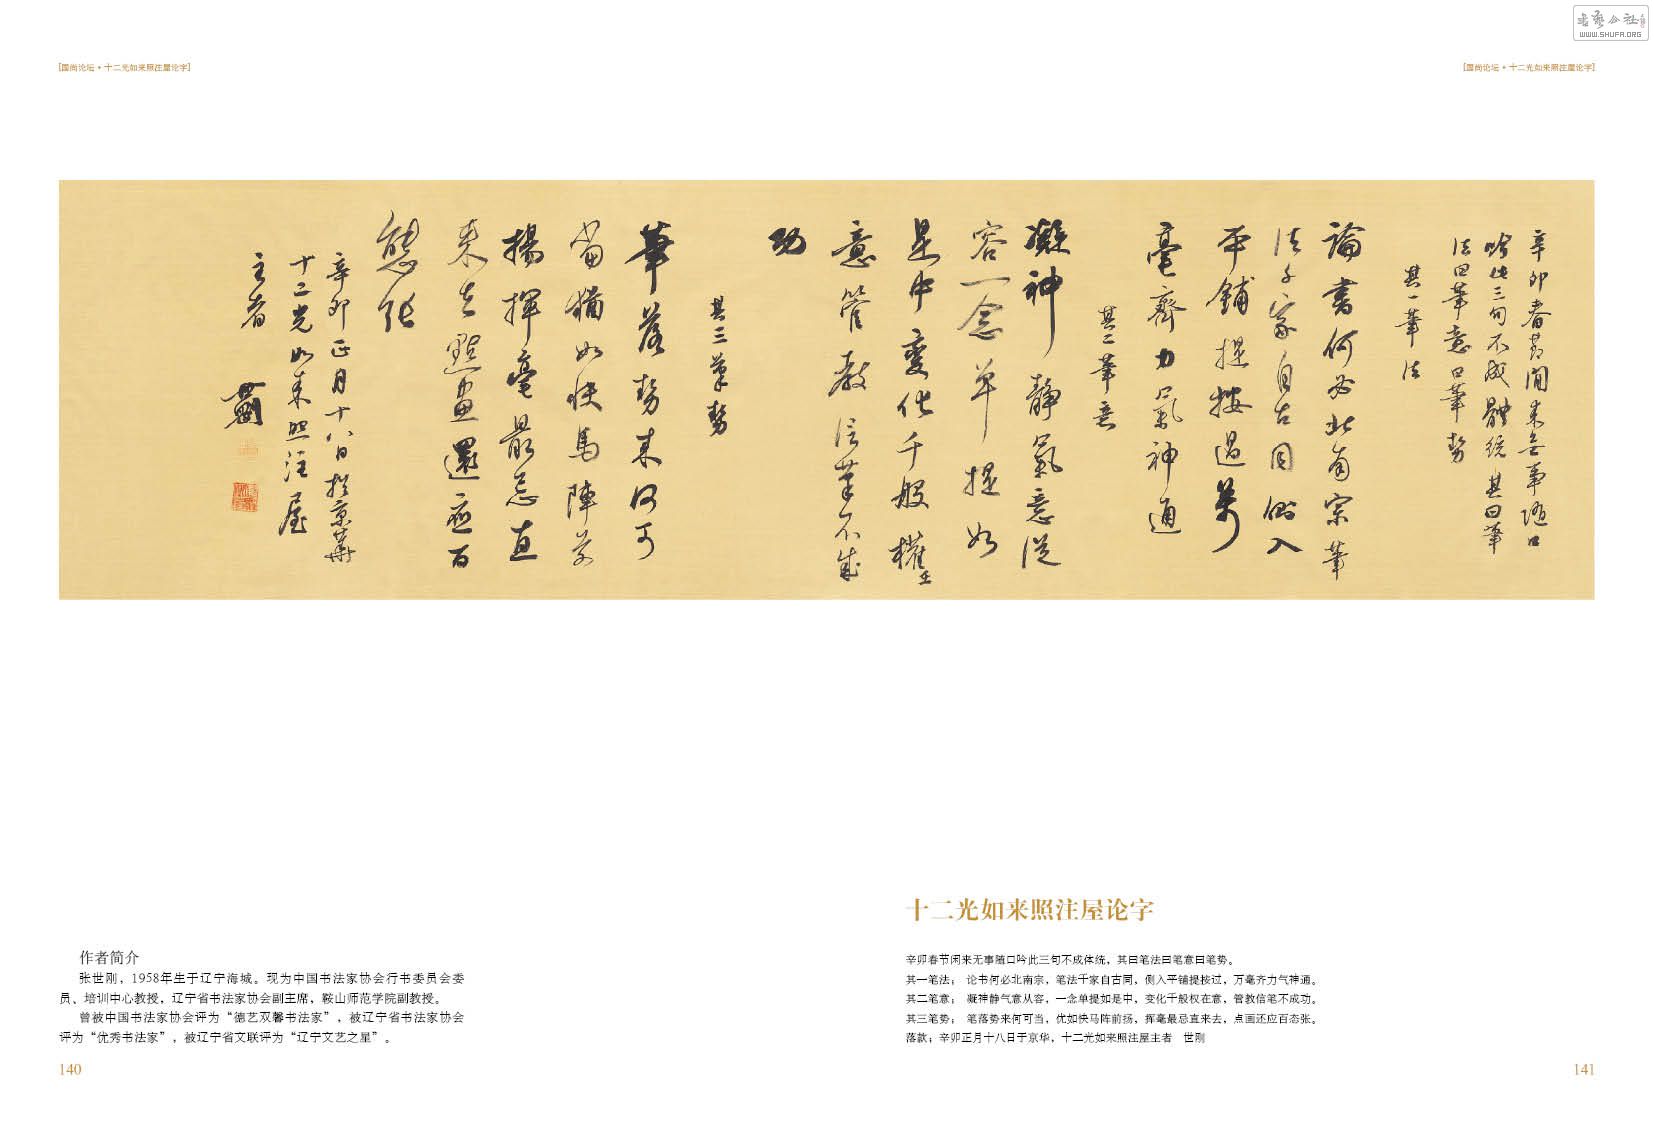 書藝公社
WWW.SHUFA.ORG
[国尚论坛·十二光如来照注屋论字]
[国尚论坛·十二光如来照注屋论字]
辛卯春節閒来無事随口
吟此三句不成體統其曰筆
法曰筆意曰筆勢
其一筆法
論書何必北南宗筆
法千家自古同側入
平鋪提按過萬
毫齊力氣神通
其二筆意
凝神静氣意従
容一念單提如
是中變化千般權在
意管教信筆不成
功
其三筆勢
筆落勢来何可
當猶如快馬陣前
揚揮毫最忌直
来去點畫還應百
態張
辛卯正月十八日於京華
十二光如来照注屋
主者
十二光如来照注屋论字
辛卯春节闲来无事随口吟此三句不成体统，其曰笔法曰笔意曰笔势。
其一笔法： 论书何必北南宗，笔法千家自古同，侧入平铺提按过，万毫齐力气神通。
其二笔意： 凝神静气意从容，一念单提如是中，变化千般权在意，管教信笔不成功。
其三笔势： 笔落势来何可当，优如快马阵前扬，挥毫最忌直来去，点画还应百态张。
落款：辛卯正月十八日于京华，十二光如来照注屋主者　世刚
作者简介
张世刚，1958年生于辽宁海城。现为中国书法家协会行书委员会委
员、培训中心教授，辽宁省书法家协会副主席，鞍山师范学院副教授。
曾被中国书法家协会评为“德艺双馨书法家”，被辽宁省书法家协会
评为“优秀书法家”，被辽宁省文联评为“辽宁文艺之星”。
140
141